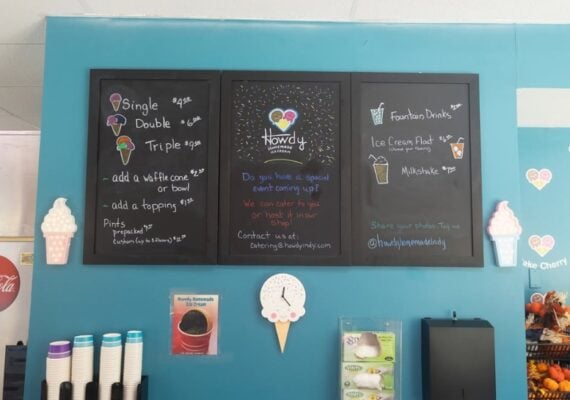 Single $4.50
Double $6.00
Triple
- add a waffle cone
or bowl
- add a topping
Pints
prepacked
custom (up to 3 flavors)
Howdy
HOMEMADE
ICE CREAM
Do you have a special
event coming up?
We can cater to you
or host it in our
shop!
Contact us at:
catering@howdyindy.com
Fountain Drinks
Ice Cream Float
(choose your flavors)
Milkshake
Share your photos. Tag us
@howdyhomemadeindy
Howdy Homemade
Ice Cream
ake Cherry